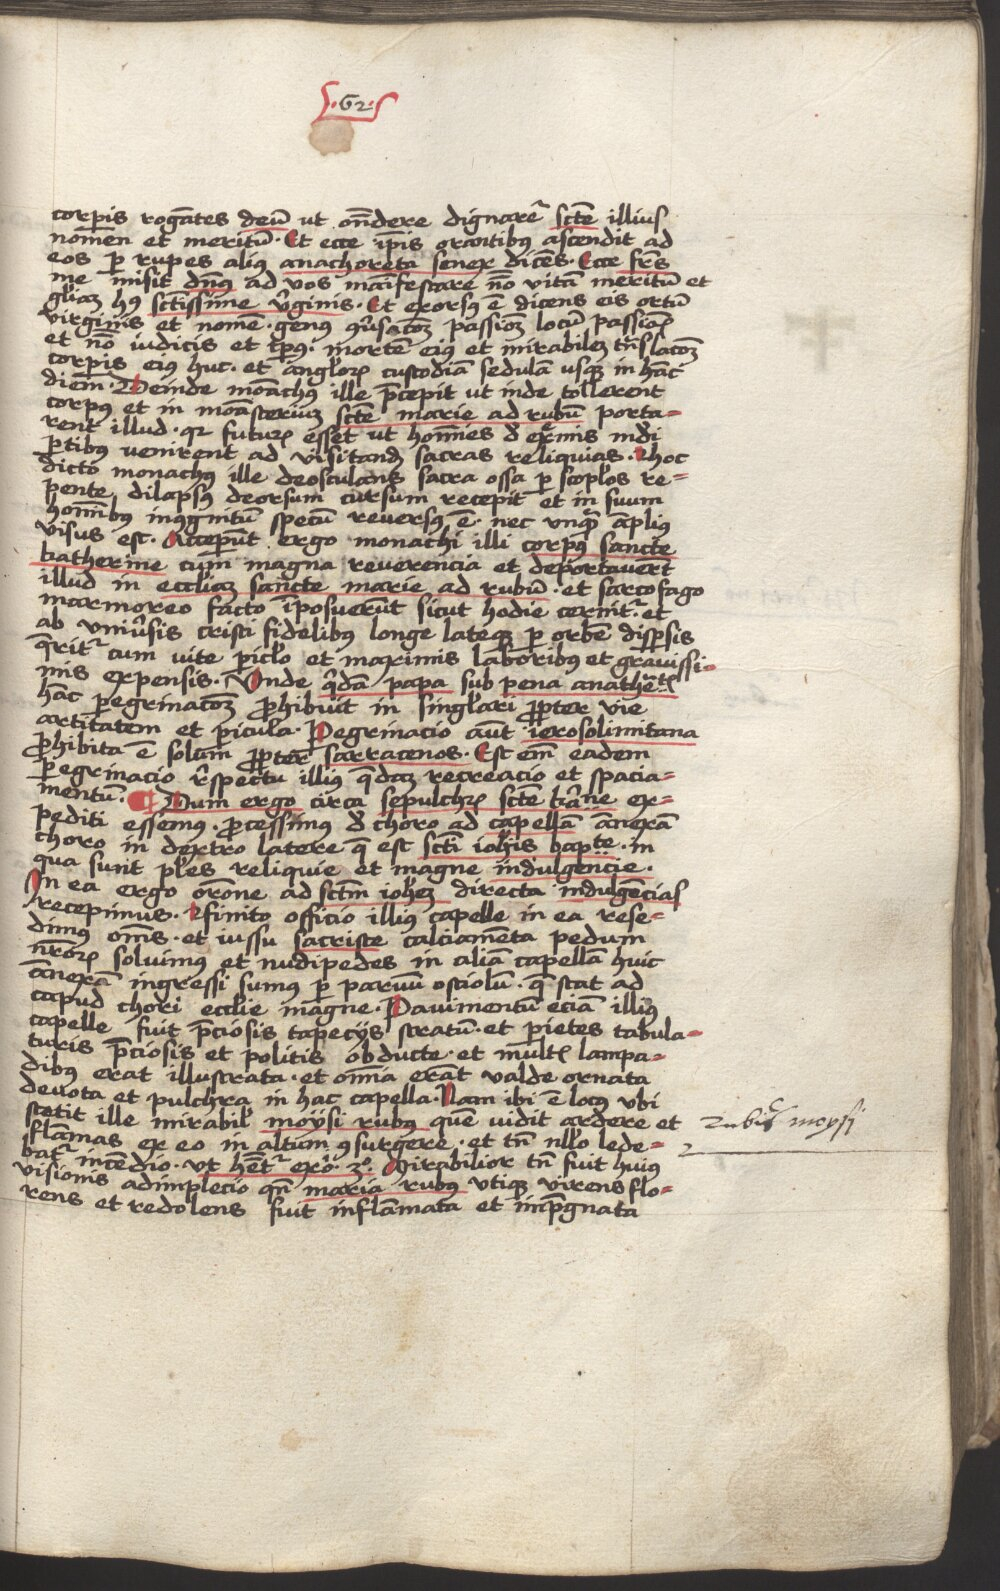 ·62·
corp̄is rogātes deū ut on̄dere dignareʳ sctē illius
nomen et meritū· Et ecce ip̄is orantibus ascendit ad
eos p rupes aliꝰ anachoreta senex dicēs· Ecce frēs
me misit dn̄us ad vos manifestare nō vitā meritū et
gl̄iaꝫ hꝰ sctissime v̄ginis· Et exorsꝰ ē dicens eis ortū
virginis et nomē· genꝰ passioꝫ locū passiōis
et nō iudicis et tp̄us· mortē eiꝰ et mirabileꝫ tn̄slacōꝫ
corp̄is eiꝰ huc· et angl̓oꝝ custodiā sedulā usqꝫ in hāc
diem· Deinde moāchus ille p̄cepit ut inde tollerent
corpꝰ et in moāsteriuꝫ sctē marie ad rubū porta=
rent illud· qr futuꝝ esset ut hom̄nes d̓ ex̄mis mdi
ꝑtibus venirent ad visitandꝫ sacras reliquias· Hoc
dicto monachus ille deosculans sacra ossa p scop̄los re=
pente dilapsꝰ deorsum cursum recepit et in suum
hom̄ibus incognitū specū reversꝰ ē· nec vnqꝫ apliꝰ
visus est· Acceper̄ut ergo monachi illi corpꝰ sancte
katherine cum magna reverencia et deportaver̄t
illud in eccl̄iaꝫ sancte marie ad rubū· et sarcofago
marmoreo facto īposuer̄ut sicut hodie cernitʳ· et
ab vniv̄sis cristi fidelibꝰ longe lateqꝫ p orbē disp̄sis
q̄ritʳ cum vite picl̓o et maximis laboribꝰ et gravissi=
mis expensis· Vnde q̄dā papa sub pena anathētꝭ
hāc pegrinacōꝫ ꝓhibuit in singl̓ari ꝓpter vie
artitatem et picula· Pegrinacio aūt ierosolimitana
ꝓhibita ē solum ꝓpter sarracenos· Est em̄ eadem
pegrinacio r̄spectu illius q̄daꝫ recreacio et spacia=
mentū· ¶ Dum ergo circa sepulchꝝ sctē kn̄ine ex=
pediti essemꝰ· ꝓcessimꝰ d̓ choro ad capellā ānexā
choro in dextro latere q̄ est sct̄i ioh̄is bapte· in
qua sunt pl̄es reliquie et magne indulgencie·
In ea ergo orōne ad sctm̄ ioh̄eꝫ directa indulgēcias
recepimus· Finito officio illiꝰ capelle in ea rese=
dimꝰ om̄s· et iussu sacriste calciamēta pedum
nr̄oꝝ solvimꝰ et nudipedes in aliā capellā huic
ānexā ingressi sumꝰ p parvū ostiolū· q̄ stat ad
capud chori eccl̄ie magne· Pavimentū eciā illiꝰ
capelle fuit p̄ciosis tapecijs stratū· et pietes tabula=
turis p̄ciosis et politis obducte· et multꝭ lampa=
dibus erat illustrata· et om̄ia erāt valde ornata
devota et pulchra in hac capella· Nam ibi ē locꝰ vbi
stetit ille mirabil̓ moysi rubꝰ quē vidit ardere et
flāmas ex eo in altum ꝯsurgere· et tn̄ nl̓lo lede=
batʳ incēdio· vt hētʳ exō· 3º· Mirabilior tn̄ fuit huiꝰ
visionis adimplecio qn̄ maria rubꝰ vtiqꝫ virens flo=
rens et redolens fuit inflāmata et imp̄gnata
Rubiꝰ moysi